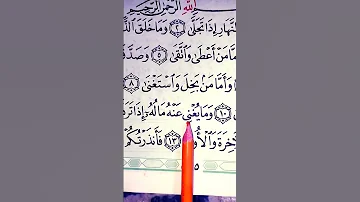 اللَّهِ الرَّحْمَٰنِ الرَّحِيمِ
لنَّهَارِ إِذَا تَجَلَّىٰ ٢ وَمَا خَلَقَ الذَّ
مَّا مَنْ أَعْطَىٰ وَاتَّقَىٰ ٥ وَصَدَّقَ
وَأَمَّا مَنْ بَخِلَ وَاسْتَغْنَىٰ ٨
١٠ وَمَا يُغْنِي عَنْهُ مَالُهُ إِذَا تَرَد
خِرَةَ وَالْأُو ١٣ فَأَنذَرْتُكُمْ
٥